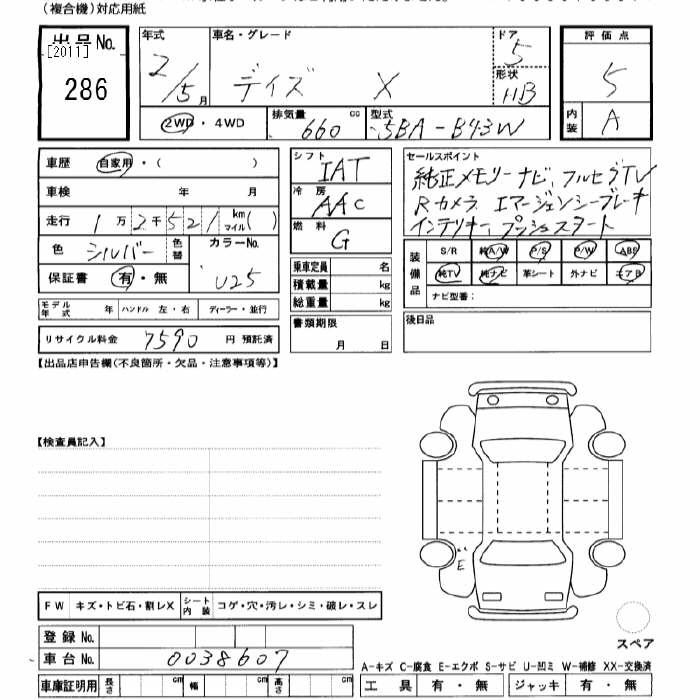 (複合機)対応用紙
出品No.
[2011]
286
年式
2/5月
車名・グレード
デイズ X
ドア
5
形状
HB
2WD・4WD
排気量
660 cc
型式
5BA-B43W
評価点
5
内装
A
車歴 自家用・( )
車検 年 月
走行 1万2千521 km マイル( )
色 シルバー 色替
カラーNo.
U25
保証書 有・無
モデル年式 年 ハンドル 左・右 ディーラー・並行
リサイクル料金 7590 円 預託済
シフト
IAT
冷房
AAC
燃料
G
乗車定員 名
積載量 kg
総重量 kg
書類期限
月 日
セールスポイント
純正メモリーナビ、フルセグTV
Rカメラ エマージェンシーブレーキ
インテリキー、プッシュスタート
装備品
S/R 純A/W P/S P/W ABS
純TV 純ナビ 革シート 外ナビ エアB
ナビ型番:
後日品
【出品店申告欄(不良箇所・欠品・注意事項等)】
【検査員記入】
E
FW キズ・トビ石・割レX シート内装 コゲ・穴・汚レ・シミ・破レ・スレ
スペア
登録No.
車台No. 0038607
車庫証明用 長さ cm 幅 cm 高さ cm
A-キズ C-腐食 E-エクボ S-サビ U-凹ミ W-補修 XX-交換済
工具 有・無 ジャッキ 有・無